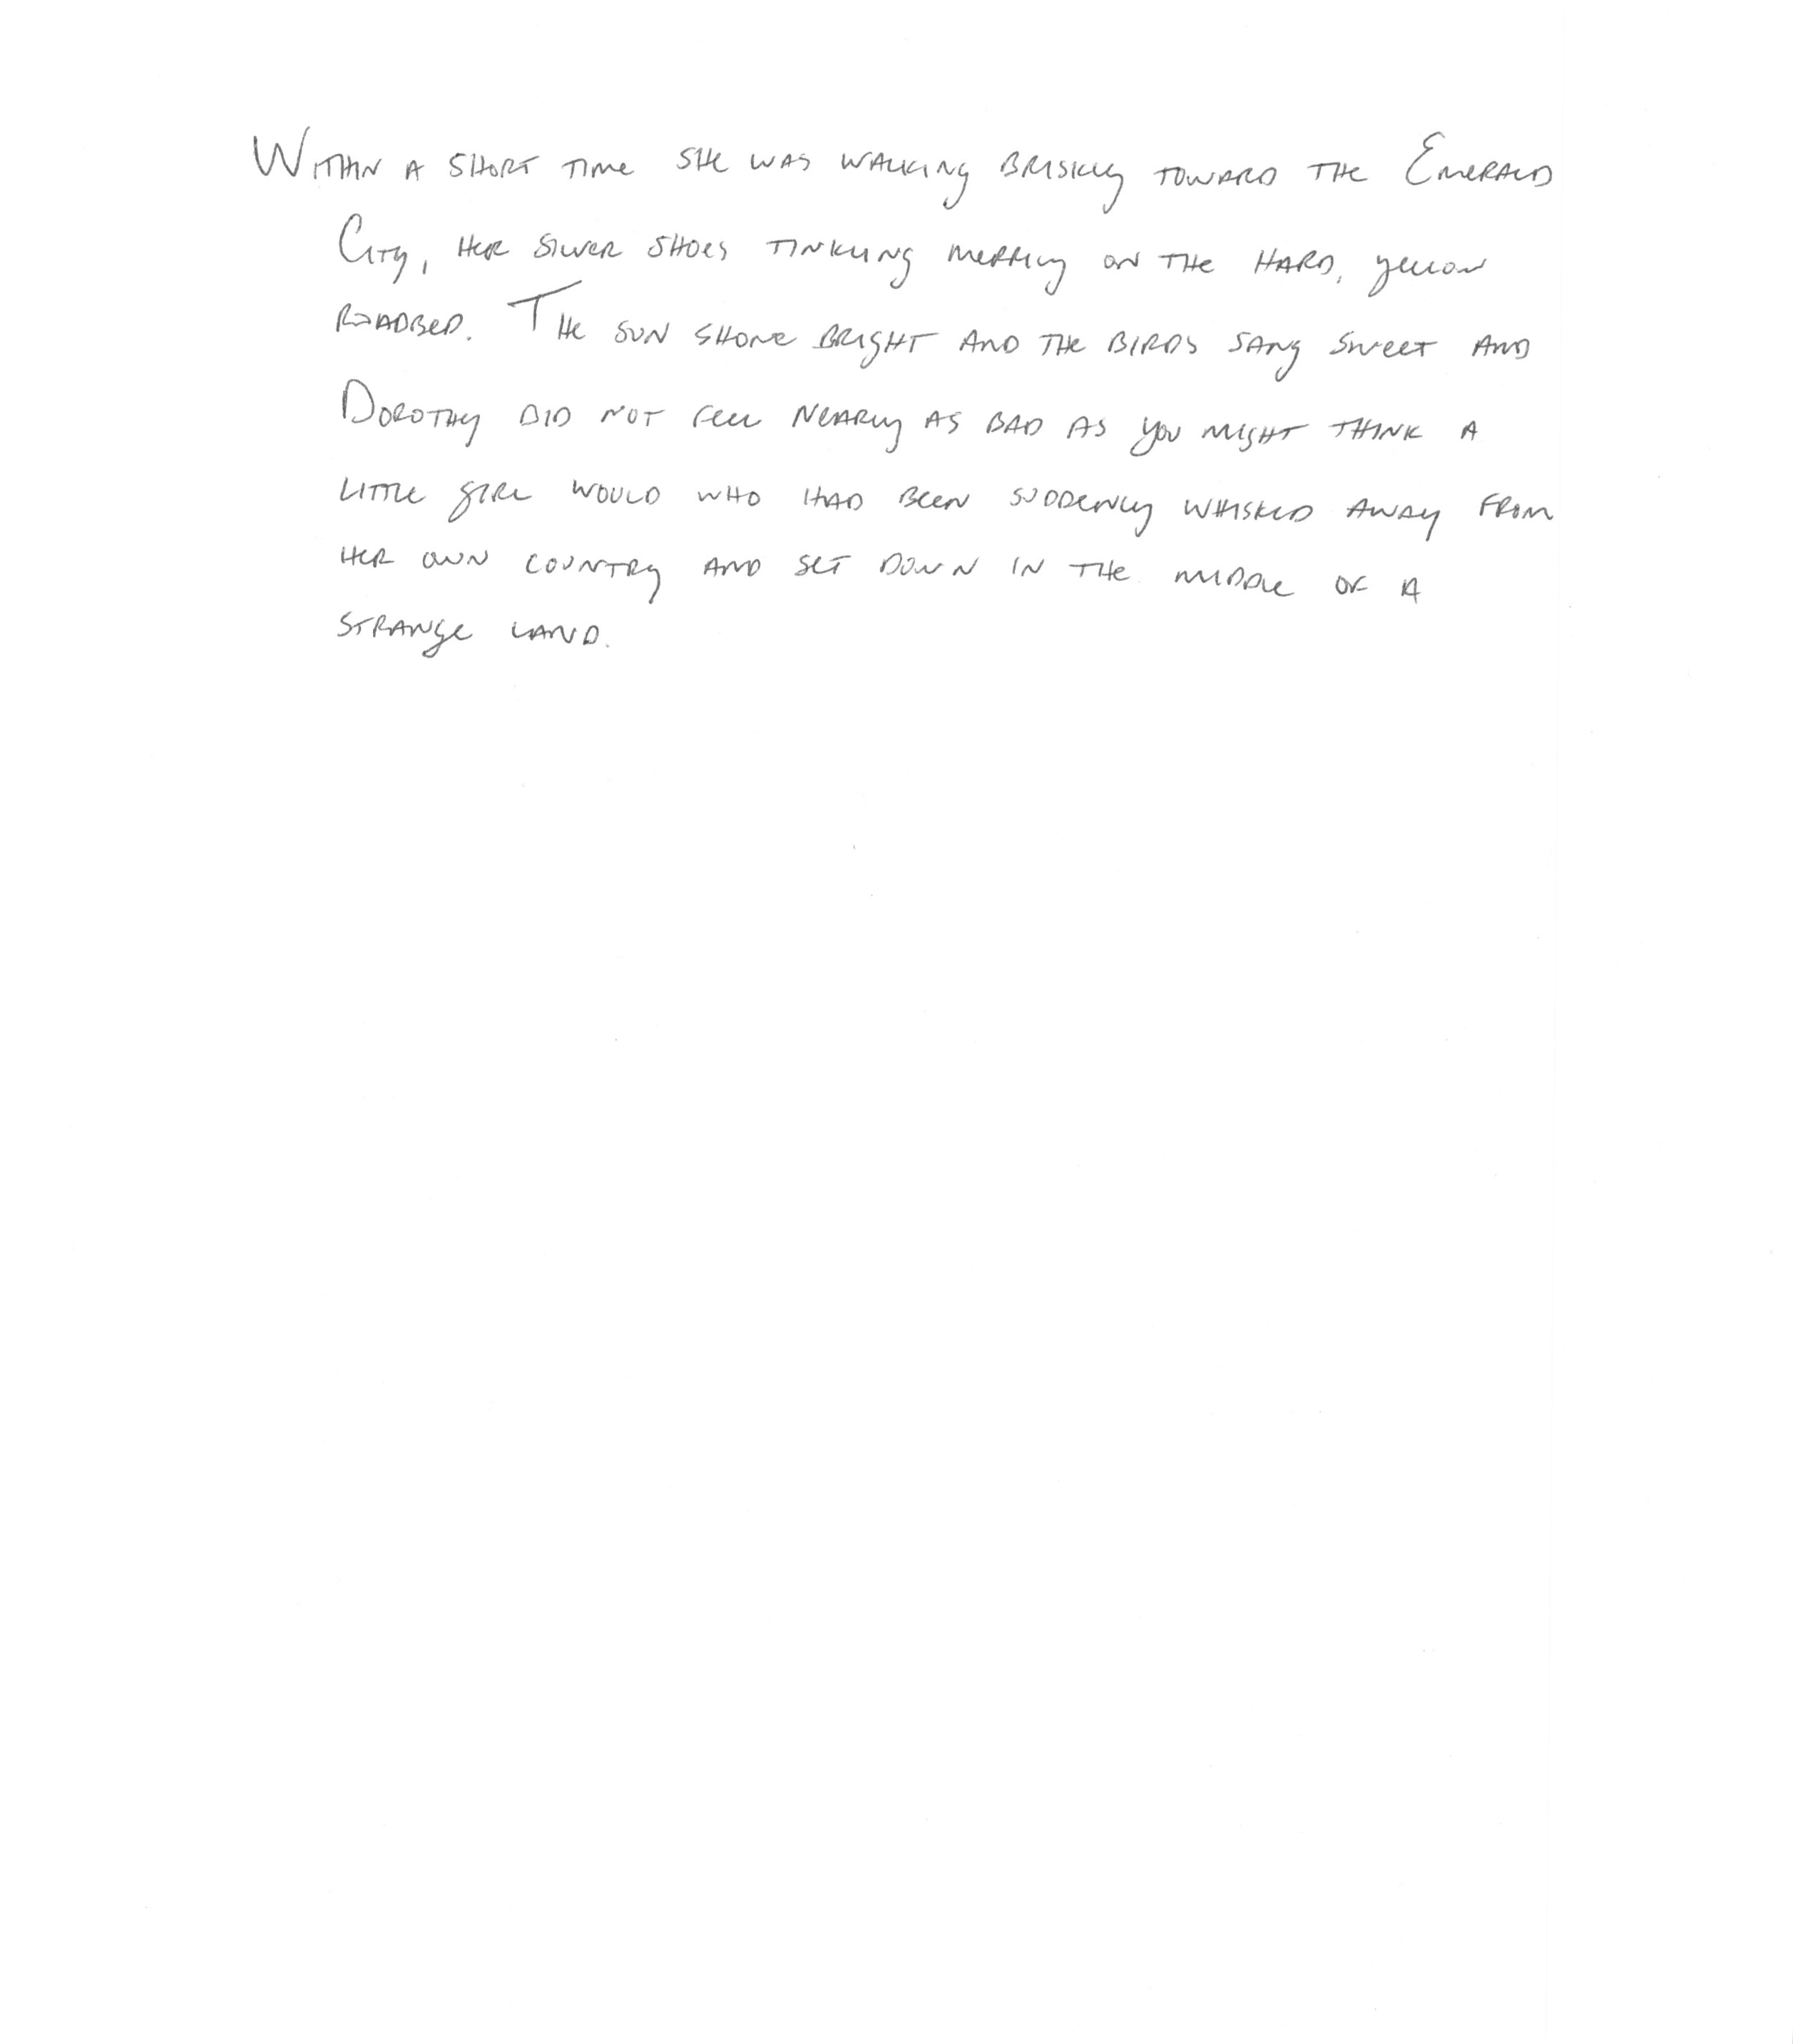 Within a short time she was walking briskly toward the Emerald
City, her silver shoes tinkling merrily on the hard, yellow
roadbed. The sun shone bright and the birds sang sweet and
Dorothy did not feel nearly as bad as you might think a
little girl would who had been suddenly whisked away from
her own country and set down in the middle of a
strange land.